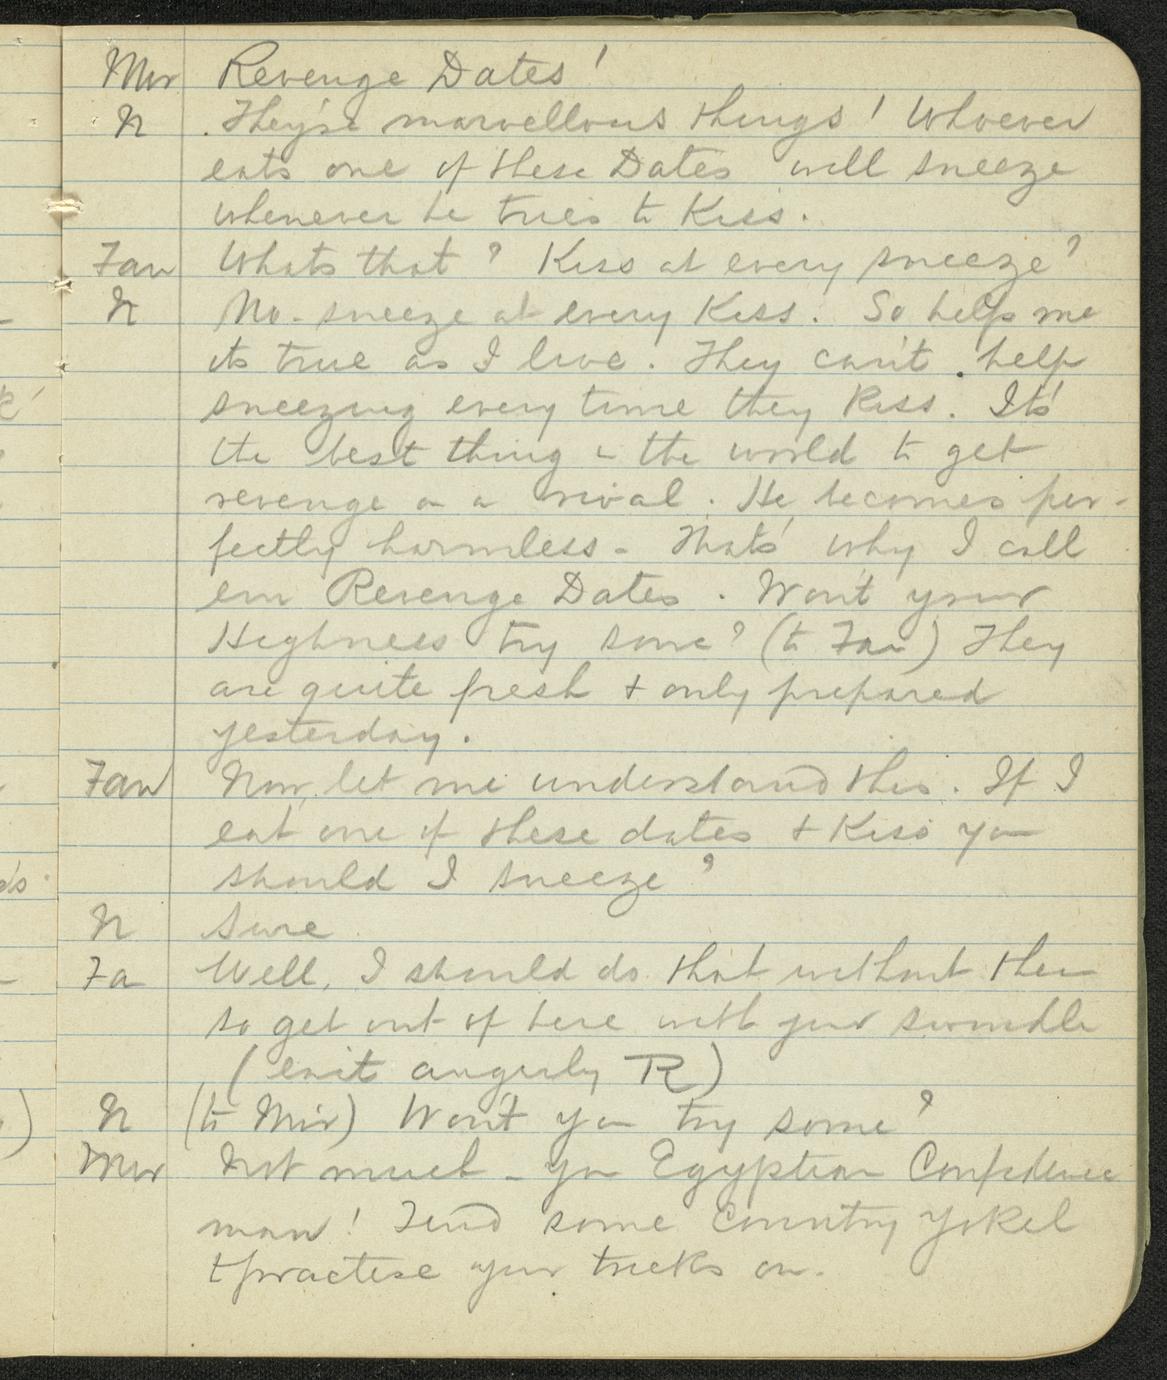 Mir Revenge Dates!
N They're marvellous things! Whoever
eats one of these Dates will sneeze
whenever he tries to Kiss.
Fan Whats that? Kiss at every sneeze?
N No - sneeze at every Kiss. So help me
its true as I live. They can't help
sneezing every time they Kiss. It's
the best thing in the world to get
revenge on a rival. He becomes per-
fectly harmless - That's why I call
em Revenge Dates. Won't your
Highness try some? (to Fan) They
are quite fresh & only prepared
yesterday.
Fan Now, let me understand this. If I
eat one of these dates & Kiss you
should I sneeze?
N Sure
Fa Well, I should do that without them
so get out of here with your swindle
(exit angrily R)
N (to Mir) Won't you try some?
Mir Not much - you Egyptian Confidence
man! Find some Country Yokel
to practise your tricks on.